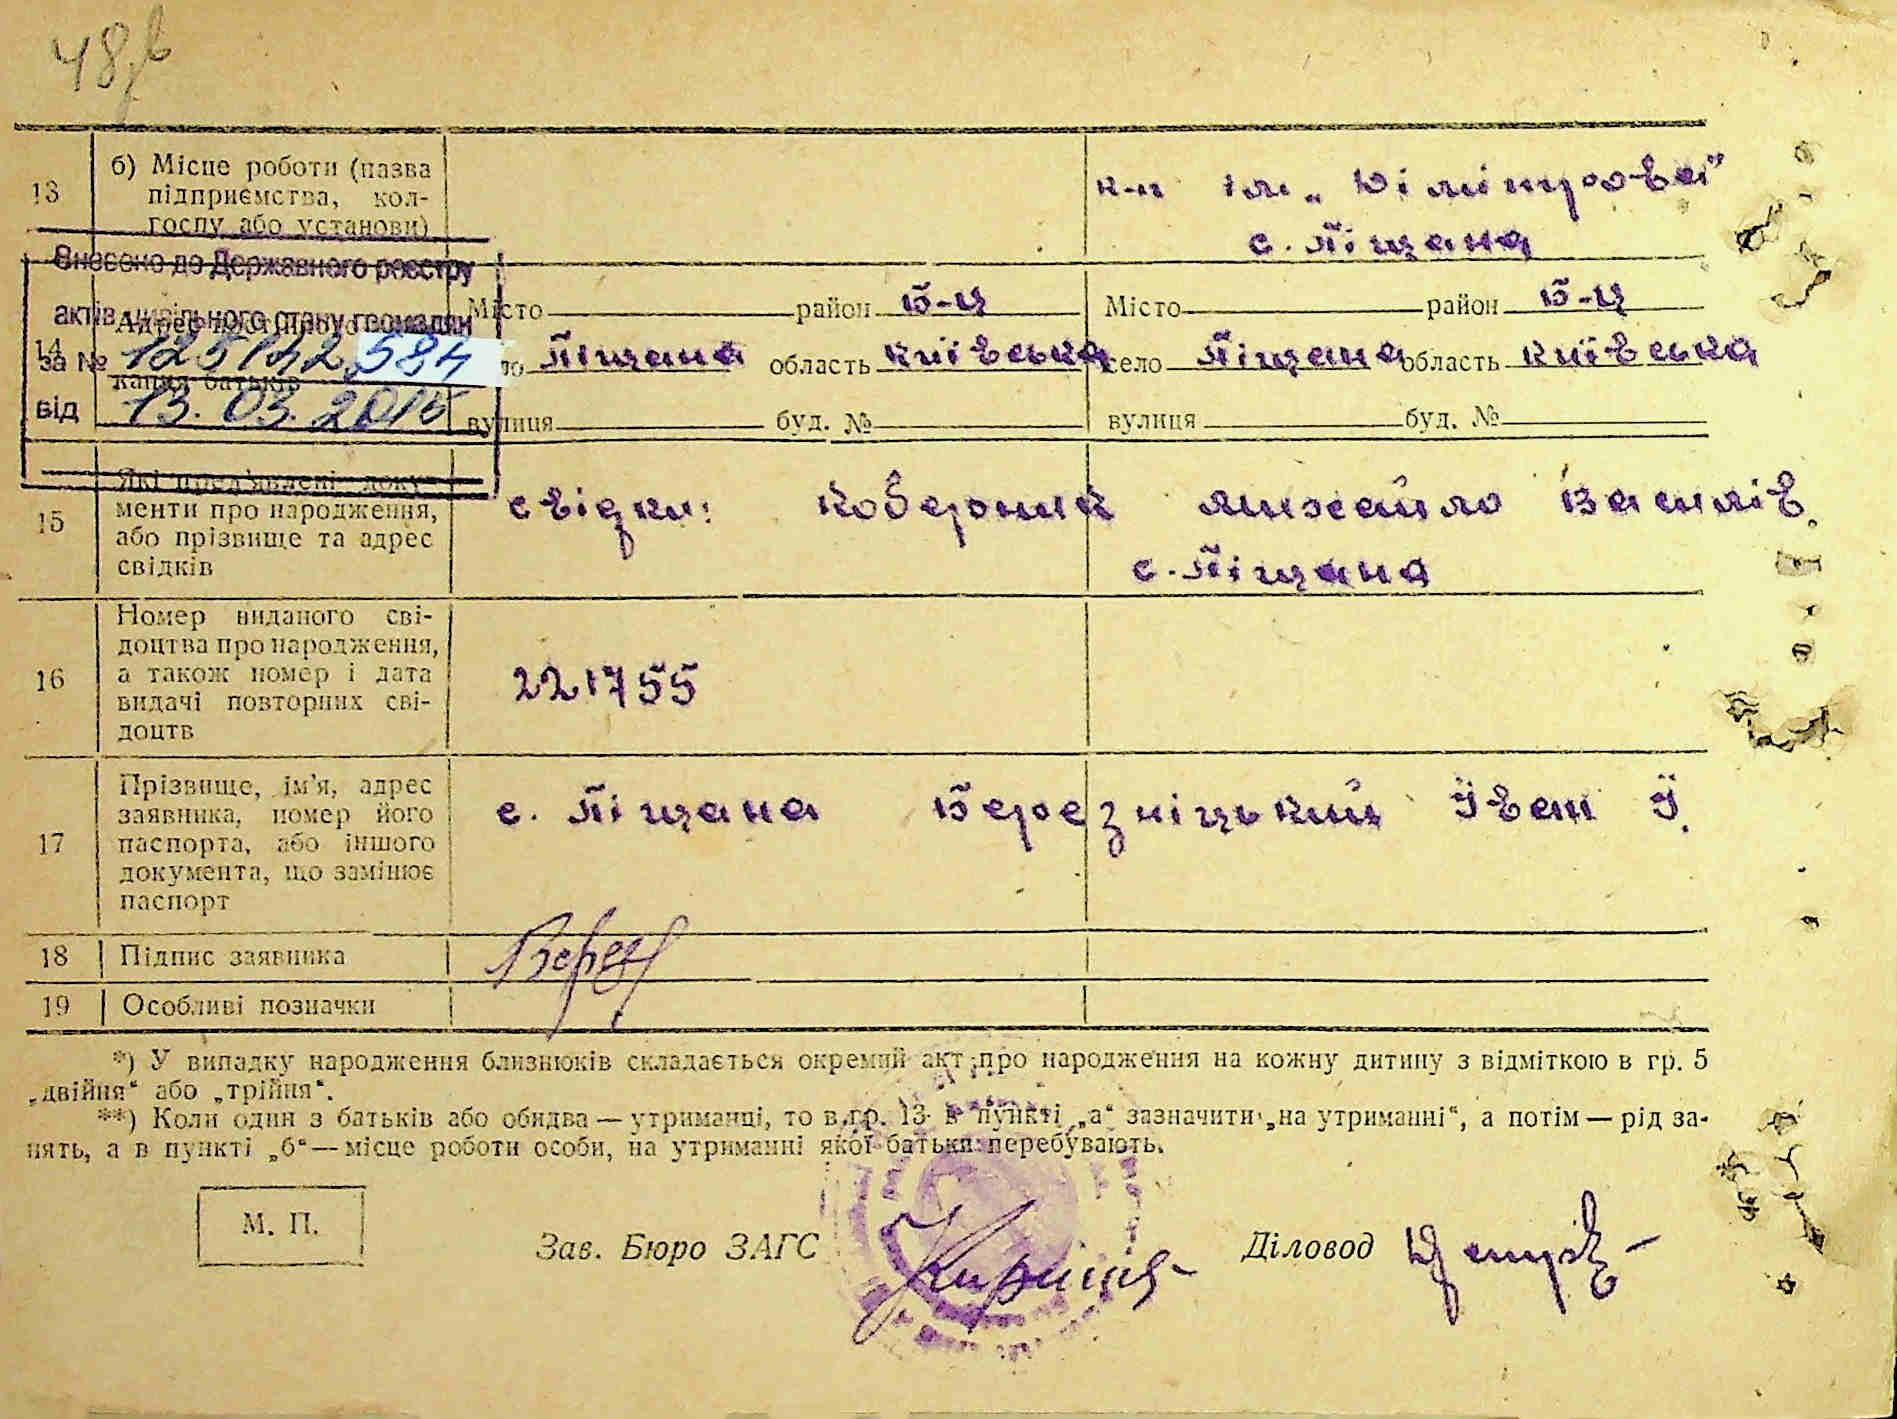 48
13 б) Місце роботи (назва
підприємства, кол-
госпу або установи)
к-п ім. „Дімітрова"
с. Піщана
Внесено до Державного реєстру
актів цивільного стану громадян
за № 125142584
від 13.03.2015
14
Місто район Б-Ц
Піщана область київська
вулиця буд. №
Місто район Б-Ц
село Піщана область київська
вулиця буд. №
15 Які пред'явлені доку-
менти про народження,
або прізвище та адрес
свідків
свідки: Коберник Михайло Василів.
с. Піщана
16 Номер виданого сві-
доцтва про народження,
а також номер і дата
видачі повторних сві-
доцтв
221755
17 Прізвище, ім'я, адрес
заявника, номер його
паспорта, або іншого
документа, що замінює
паспорт
с. Піщана Березніцький Іван І.
18 Підпис заявника
19 Особливі позначки
*) У випадку народження близнюків складається окремий акт про народження на кожну дитину з відміткою в гр. 5
„двійня“ або „трійня“.
**) Коли один з батьків або обидва — утриманці, то в гр. 13 в пункті „а“ зазначити „на утриманні“, а потім — рід за-
нять, а в пункті „б“ — місце роботи особи, на утриманні якої батьки перебувають.
М. П.
Зав. Бюро ЗАГС
Діловод